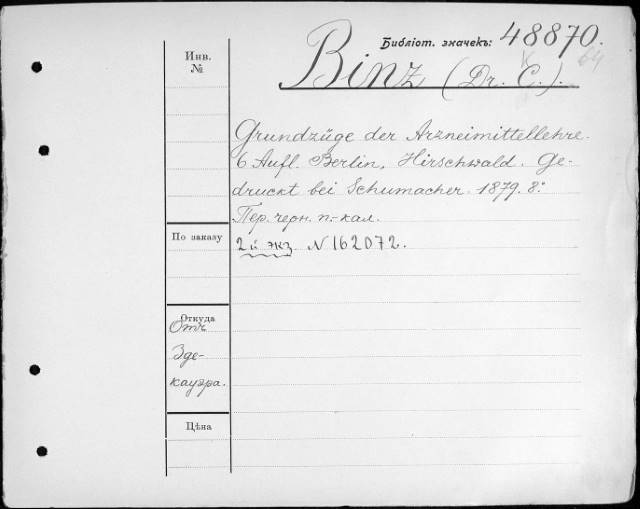 Библіот. значекъ: 48870.
Инв.
№
Binz (Dr. C.).
Grundzüge der Arzneimittellehre.
6 Aufl. Berlin, Hirschwald. Ge-
druckt bei Schumacher. 1879. 8º.
Пер. черн. п.-кал.
По заказу
2й экз. N 162072.
Откуда
Отъ
Зде-
кауэра.
Цѣна